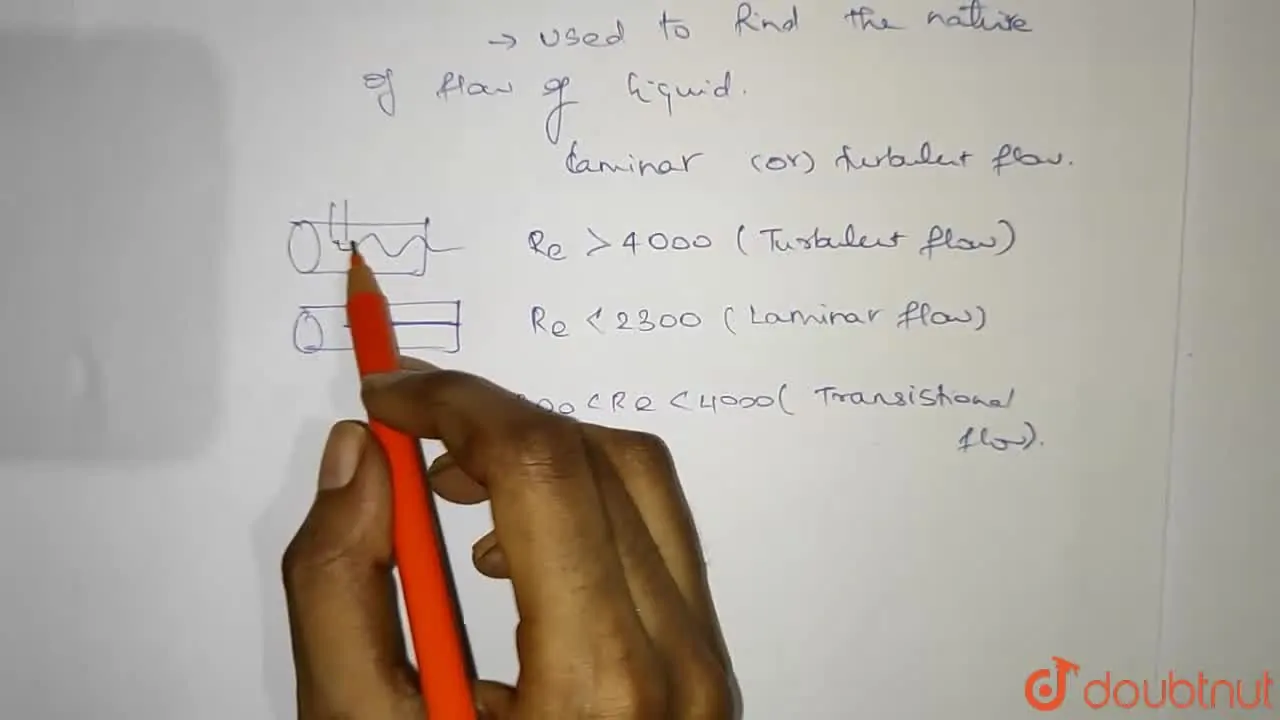 → used to find the nature
of flow of liquid.
Laminar (or) turbulent flow.
Re > 4000 (Turbulent flow)
Re < 2300 (Laminar flow)
< Re < 4000 ( Transistional
flow).
doubtnut